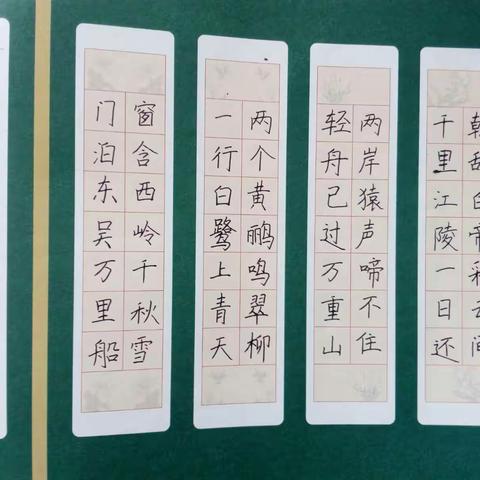 朝辞白帝彩云间
千里江陵一日还
两岸猿声啼不住
轻舟已过万重山
两个黄鹂鸣翠柳
一行白鹭上青天
窗含西岭千秋雪
门泊东吴万里船